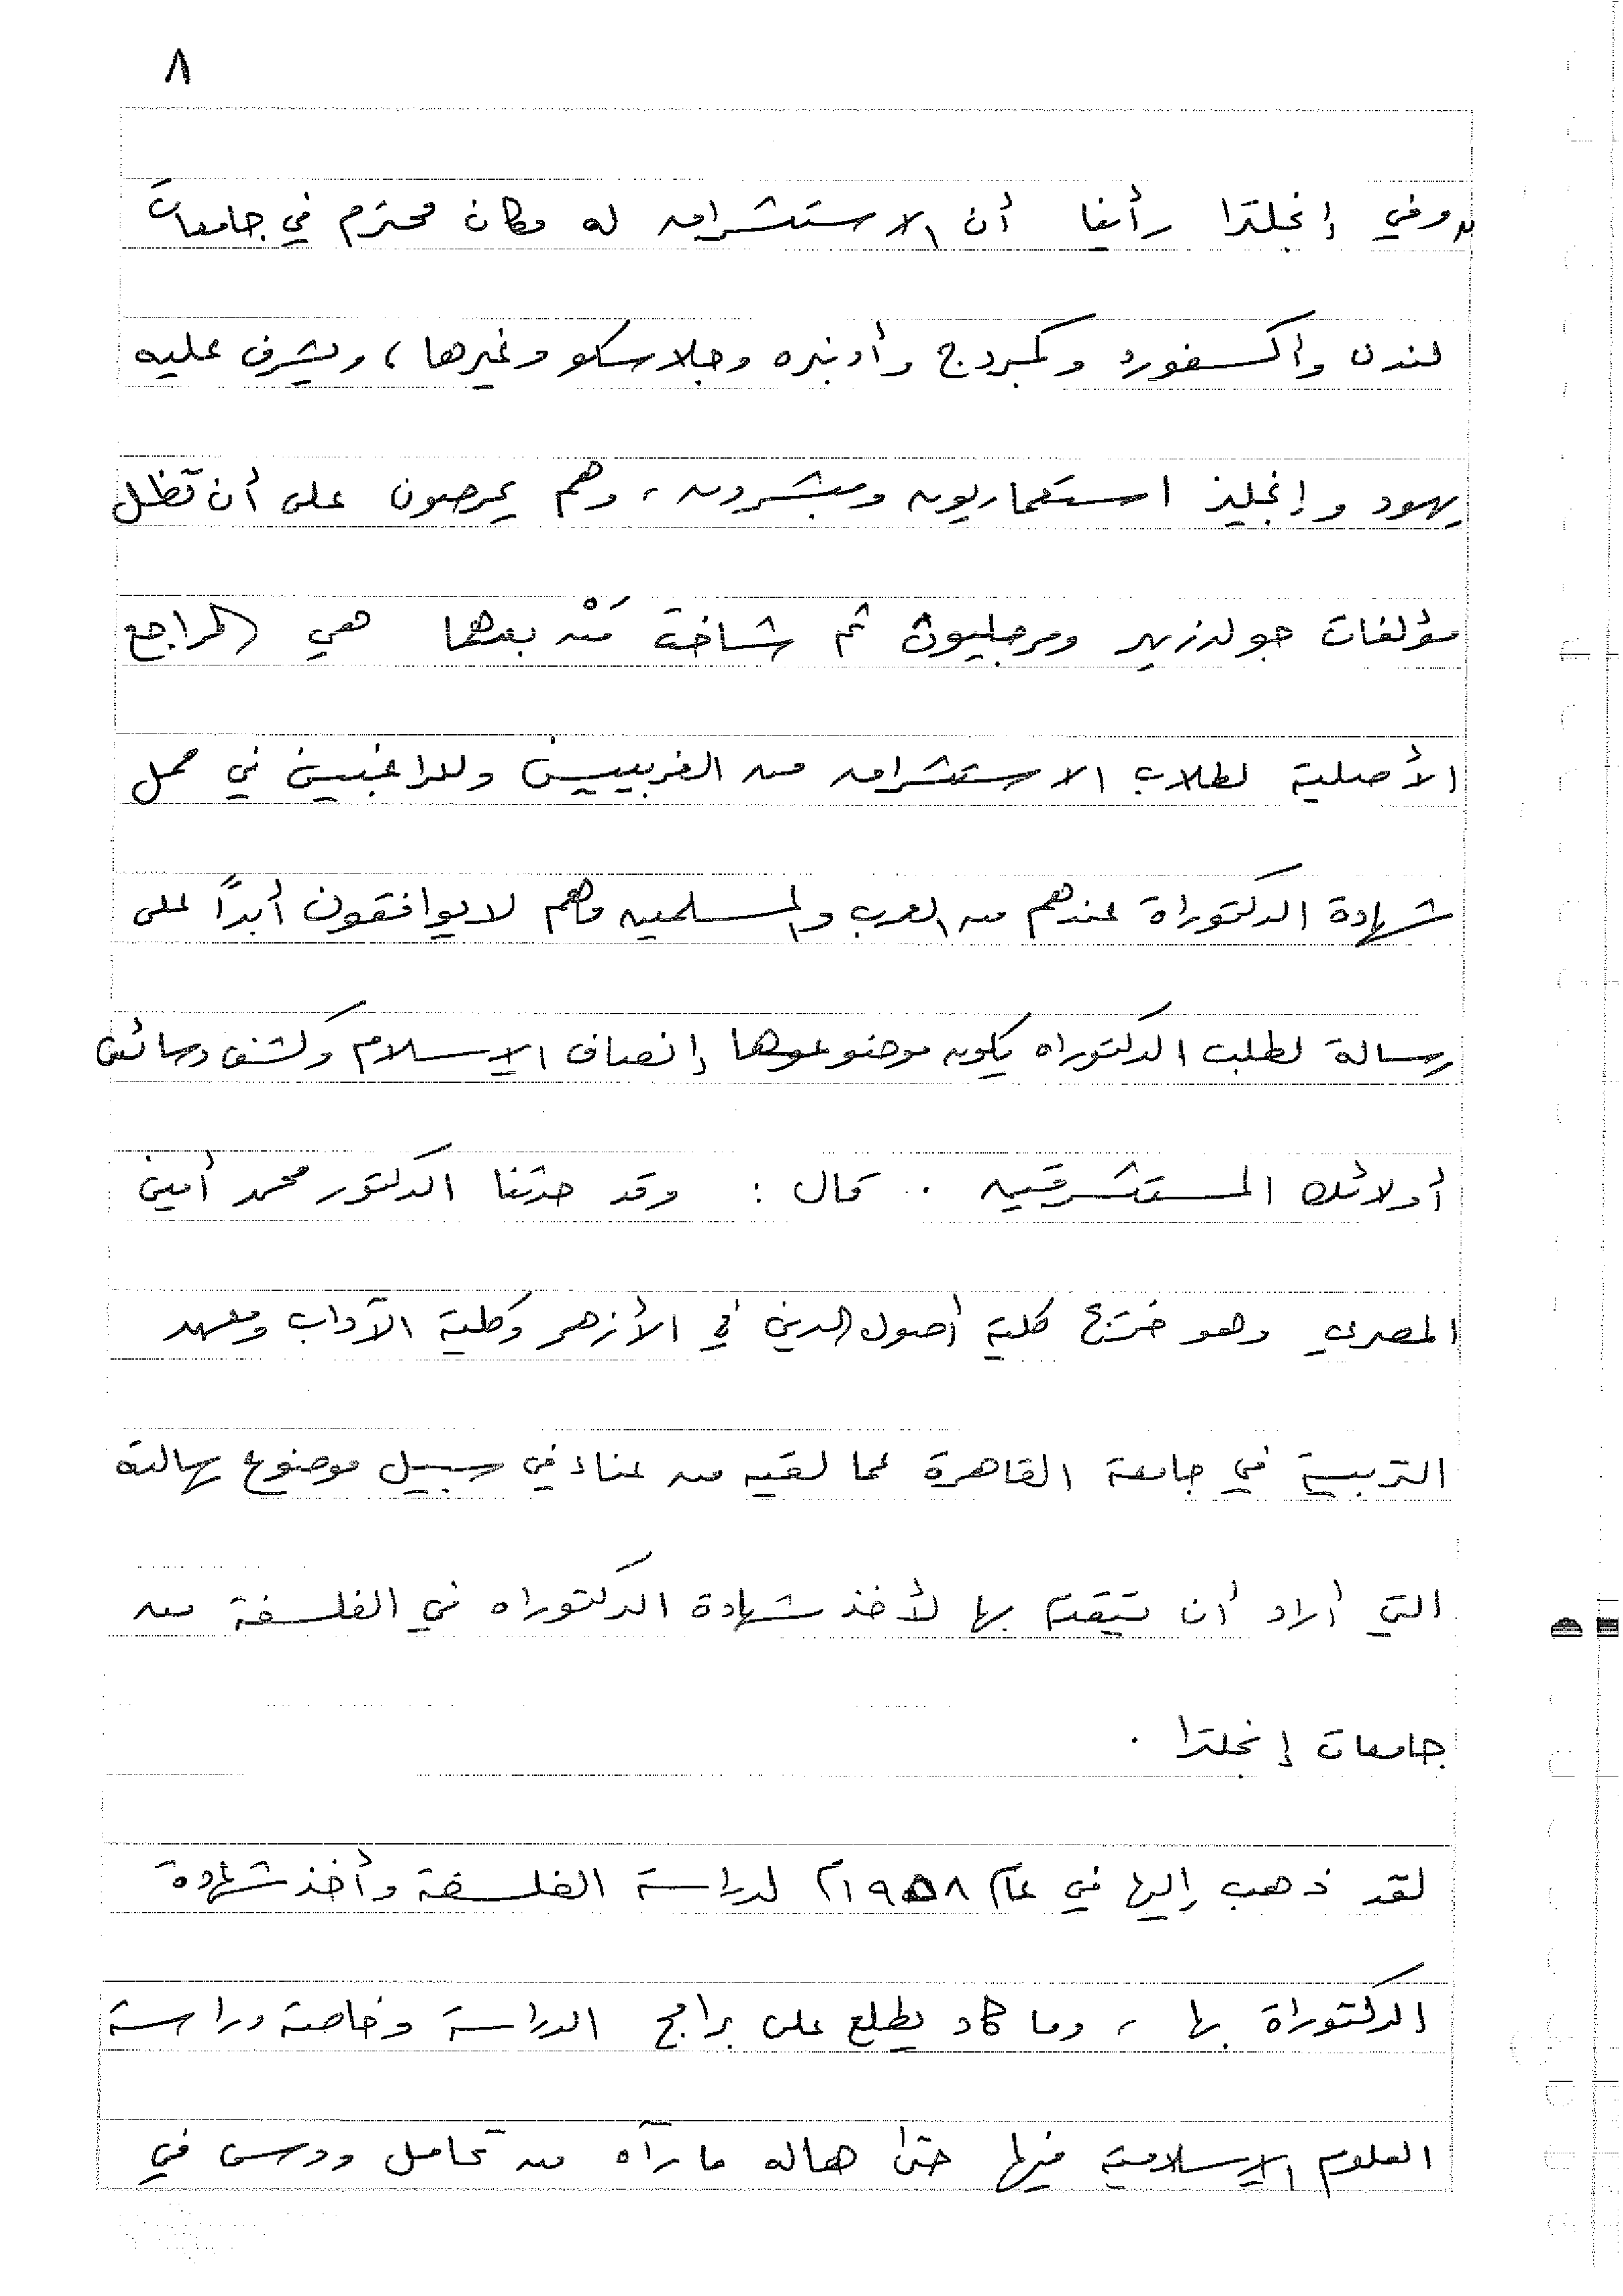 ٨
وفي إنجلترا رأينا أن الاستشراق له مكان محترم في جامعات
لندن وأكسفورد وكمبردج وأدنبره وجلاسكو وغيرها، ويشرف عليه
يهود وإنجليز استعماريون ومبشرون، وهم يحرصون على أن تظل
مؤلفات جولدزيهر ومرجليوث ثم شاخت مَنْ بعدها هي المراجع
الأصلية لطلاب الاستشراق من الغربيين وللراغبين في حمل
شهادة الدكتوراة عندهم من العرب والمسلمين وهم لا يوافقون أبداً على
رسالة لطلب الدكتوراه يكون موضوعها إنصاف الإسلام وكشف دسائس
أولائك المستشرقين . قال : وقد حدثنا الدكتور محمد أمين
المصري وهو خريج كلية أصول الدين في الأزهر وكلية الآداب ومعهد
التربية في جامعة القاهرة عما لقيه من عناء في سبيل موضوع رسالته
التي أراد أن يتقدم بها لأخذ شهادة الدكتوراه في الفلسفة من
جامعات إنجلترا .
لقد ذهب إليها في عام ١٩٥٨م لدراسة الفلسفة وأخذ شهادة
الدكتوراة بها ، وما كاد يطلع على برامج الدراسة وخاصة دراسة
العلوم الإسلامية فيها حتى هاله ما رآه من تحامل ودس في